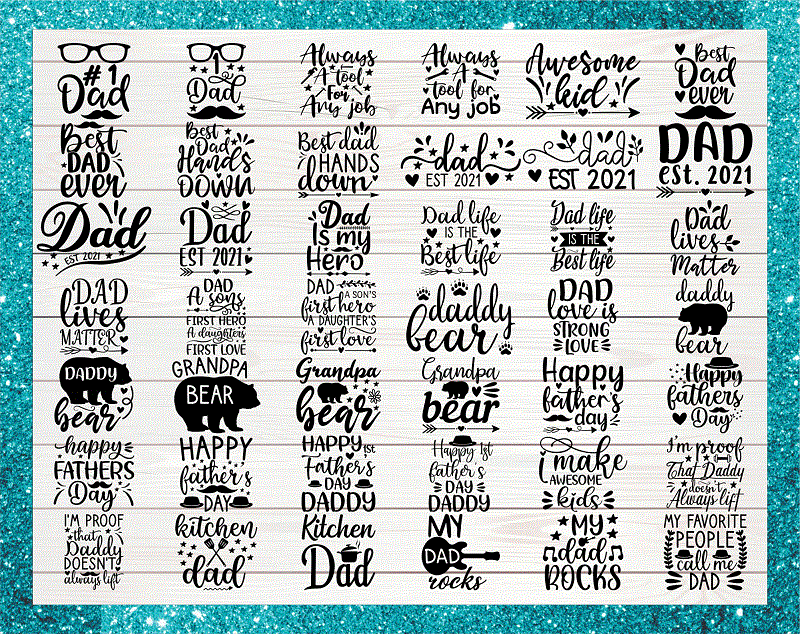 #1
Dad
1
Dad
Always
A tool
For
Any job
Always
A
tool for
Any job
Awesome
kid
Best
Dad
ever
Best
DAD
ever
Best
Dad
Hands
DOWN
Best dad
HANDS
down
dad
EST 2021
dad
EST 2021
DAD
est. 2021
Dad
EST 2021
Dad
EST 2021
Dad
Is my
Hero
Dad life
IS THE
Best life
Dad life
IS THE
Best life
Dad
lives
Matter
DAD
lives
MATTER
DAD
A sons
FIRST HERO
A daughters
FIRST LOVE
DAD
A SON'S
first hero
A DAUGHTER'S
first love
daddy
bear
DAD
love is
STRONG
LOVE
daddy
bear
DADDY
bear
GRANDPA
BEAR
Grandpa
bear
Grandpa
bear
Happy
father's
day
Happy
fathers
Day
happy
FATHERS
Day
HAPPY
father's
DAY
HAPPY 1st
Father's
DAY
DADDY
Happy 1st
father's
DAY
DADDY
i make
AWESOME
kids
I'm proof
That Daddy
doesn't
Always lift
I'M PROOF
that
Daddy
DOESN'T
always lift
kitchen
dad
Kitchen
Dad
MY
DAD
rocks
MY
dad
ROCKS
MY FAVORITE
PEOPLE
call me
DAD